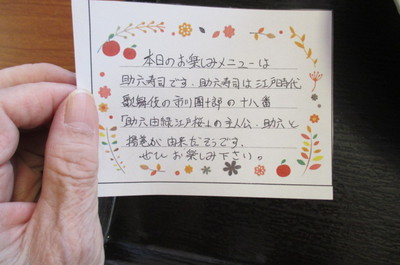 本日のお楽しみメニューは
助六寿司です。助六寿司は江戸時代
歌舞伎の市川團十郎の十八番
「助六由縁江戸桜」の主人公、助六と
揚巻が由来だそうです。
ぜひお楽しみ下さい。